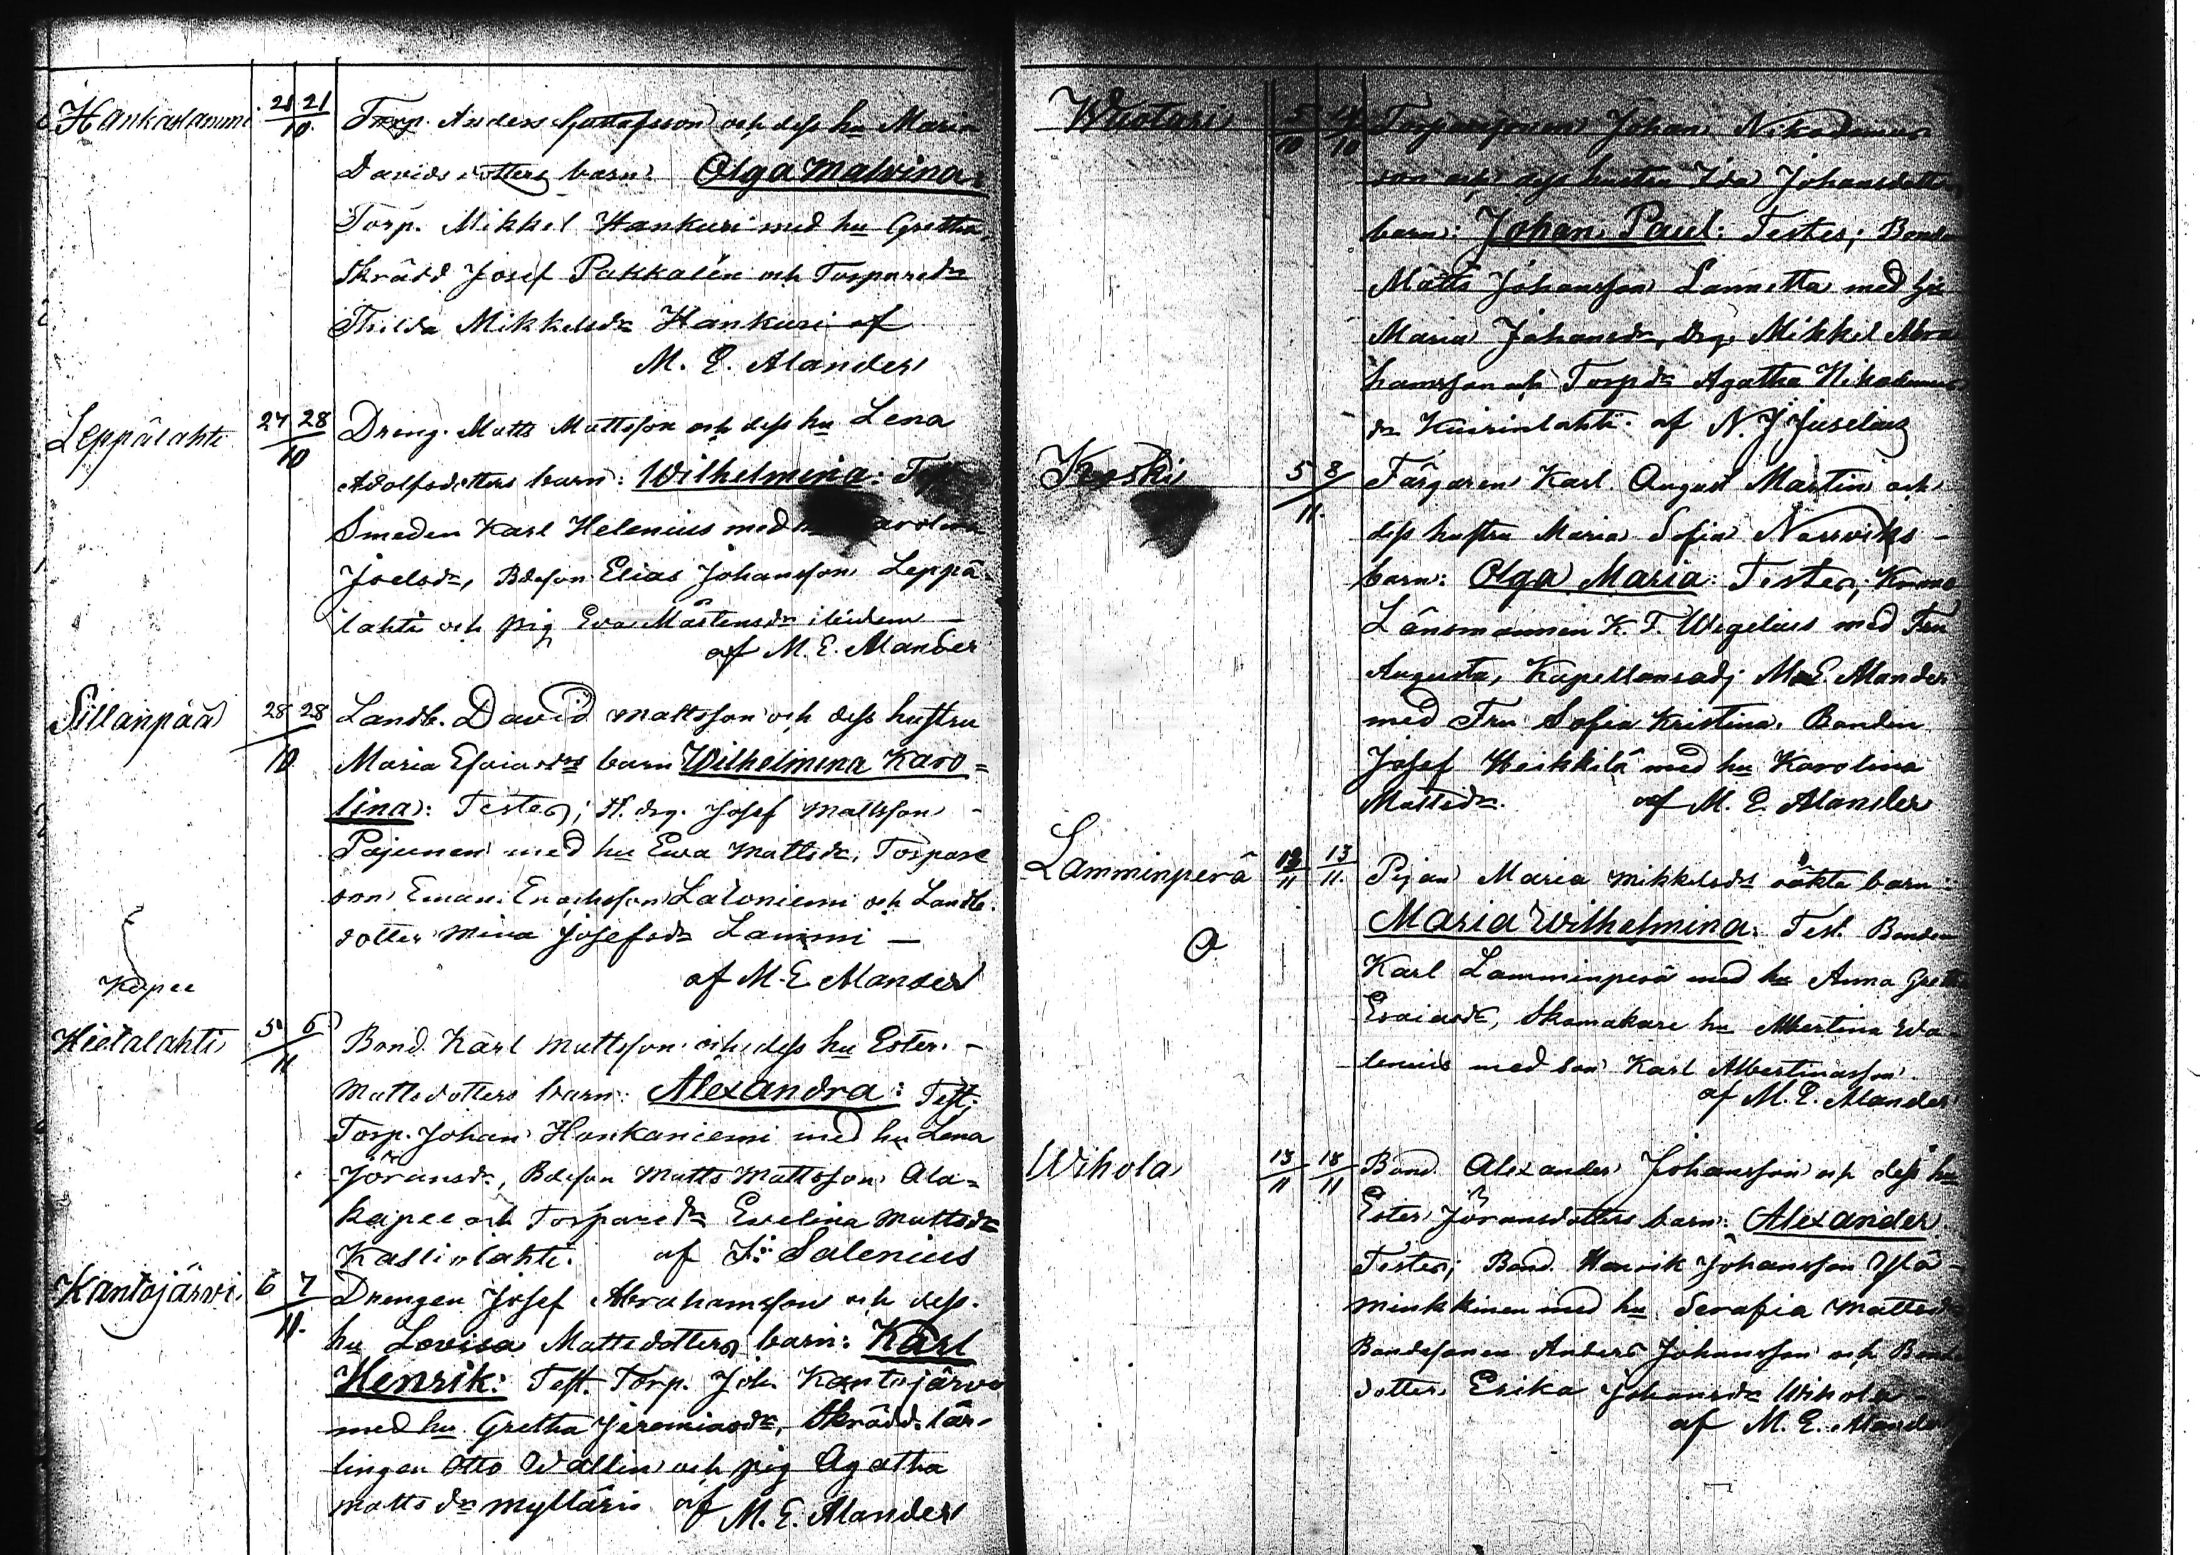 Hankaslammi 21 21/10 Torp. Anders Gustafsson och dess hu Maria
Davidsdotters barn: Olga Malvina:
Torp. Mikkel Hankuri med hu Gretha,
Skrädd Josef Pakkalén och Torpareda
Thilda Mikkelsda Hankuri af
M. E. Alander
Leppälahti 27 28/10 Dreng. Matts Mattsson och dess hu Lena
Adolfsdotters barn: Wilhelmina: Test
Smeden Karl Helenius med
Joelsda, Bdeson Elias Johansson Leppä-
lahti och pig Eva Mårtensda ibidem
af M. E. Alander
Sillanpää 28 28/10 Landb. David Mattsson och dess hustru
Maria Esaiasdrs barn Wilhelmina Karo=
lina: Testes; H. drg. Josef Mattsson
Pajunen med hu Ewa Mattsda, Torpare
son Eman. Enochsson Latoniemi och Landb.
dotter Mina Josefsda Lammi —
af M. E. Alander
Kapee
Hietalahti 5 6/11 Bond. Karl Mattsson och dess hu Ester.
Mattsdotters barn: Alexandra: Test;
Torp. Johan Honkaniemi med hu Lena
Jöransda, Bdeson Matts Mattsson Ala=
kapee och Torpareda Evelina Mattsda
Kaslinlahti. af F: Salenius
Kantojärvi 6 7/11. Drengen Josef Abrahamsson och dess.
hu Lovisa Mattsdotters barn: Karl
Henrik: Test. Torp. Joh. Kantojärvi
med hu Gretha Jeremiasda, Skrädd. lär-
lingen Otto Wallin och pig Agatha
Mattsda Mylläri af M. E. Alander
Wuotari 5/10 14/10 Torparesonen Johan Nikodemus
son och dess hustru Ida Johansdotters
barn: Johan Paul: Testes; Bonden
Matts Johansson Lannetta med hu
Maria Johansda, Drg. Mikkel Abra
hamsson och Torpda Agatha Nikodemus
da Kuirinlahti. af N. J Juselius
Koski 5 8/11. Färgaren Karl August Martin och
dess hustru Maria Sofia Narviks -
barn: Olga Maria: Testes; Krono
Länsmannen K. F. Wegelius med Fru
Augusta, Kapellansadj M. E. Alander
med Fru Sofia Kristina. Bonden
Josef Heikkilä med hu Karolina
Mattsda. af M. E. Alander
Lamminperä 12/11 13/11. Pigan Maria Mikkelsds oäkta barn:
Maria Wilhelmina: Test. Bonden
O
Karl Lamminperä med hu Anna Greta
Esaiasda, Skomakare hu Albertina Wa-
lenius med son Karl Albertinasson.
af M. E. Alander
Wihola 13/11 18/11 Bond Alexander Johansson och dess hu
Ester Jöransdotters barn: Alexander
Testes; Bond. Henrik Johansson Ylä-
minkkinen med hu Serafia Mattsda
Bondesonen Anders Johansson och Bonde
dotter Erika Johansda Wihola -
af M. E. Alander